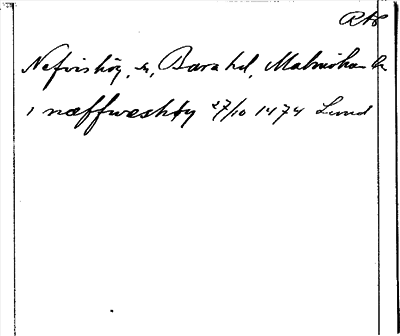 RAP
Nefvishög, sn, Bara hd, Malmöhus län
i næffwæshøy 27/10 1474 Lund